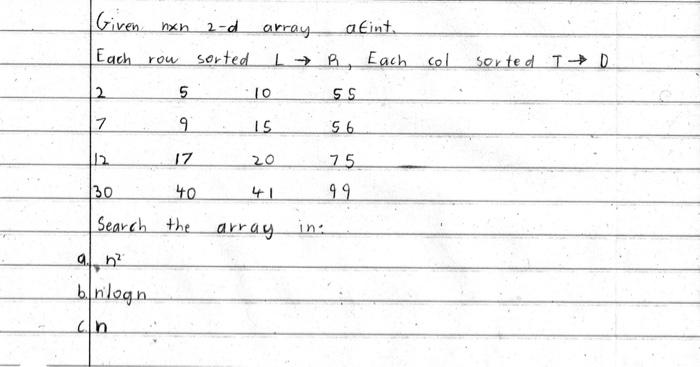 Given nxn 2-d array a∈int.
Each row sorted L → R, Each col sorted T → D
2 5 10 55
7 9 15 56
12 17 20 75
30 40 41 99
Search the array in:
a. n²
b. nlogn
c. n